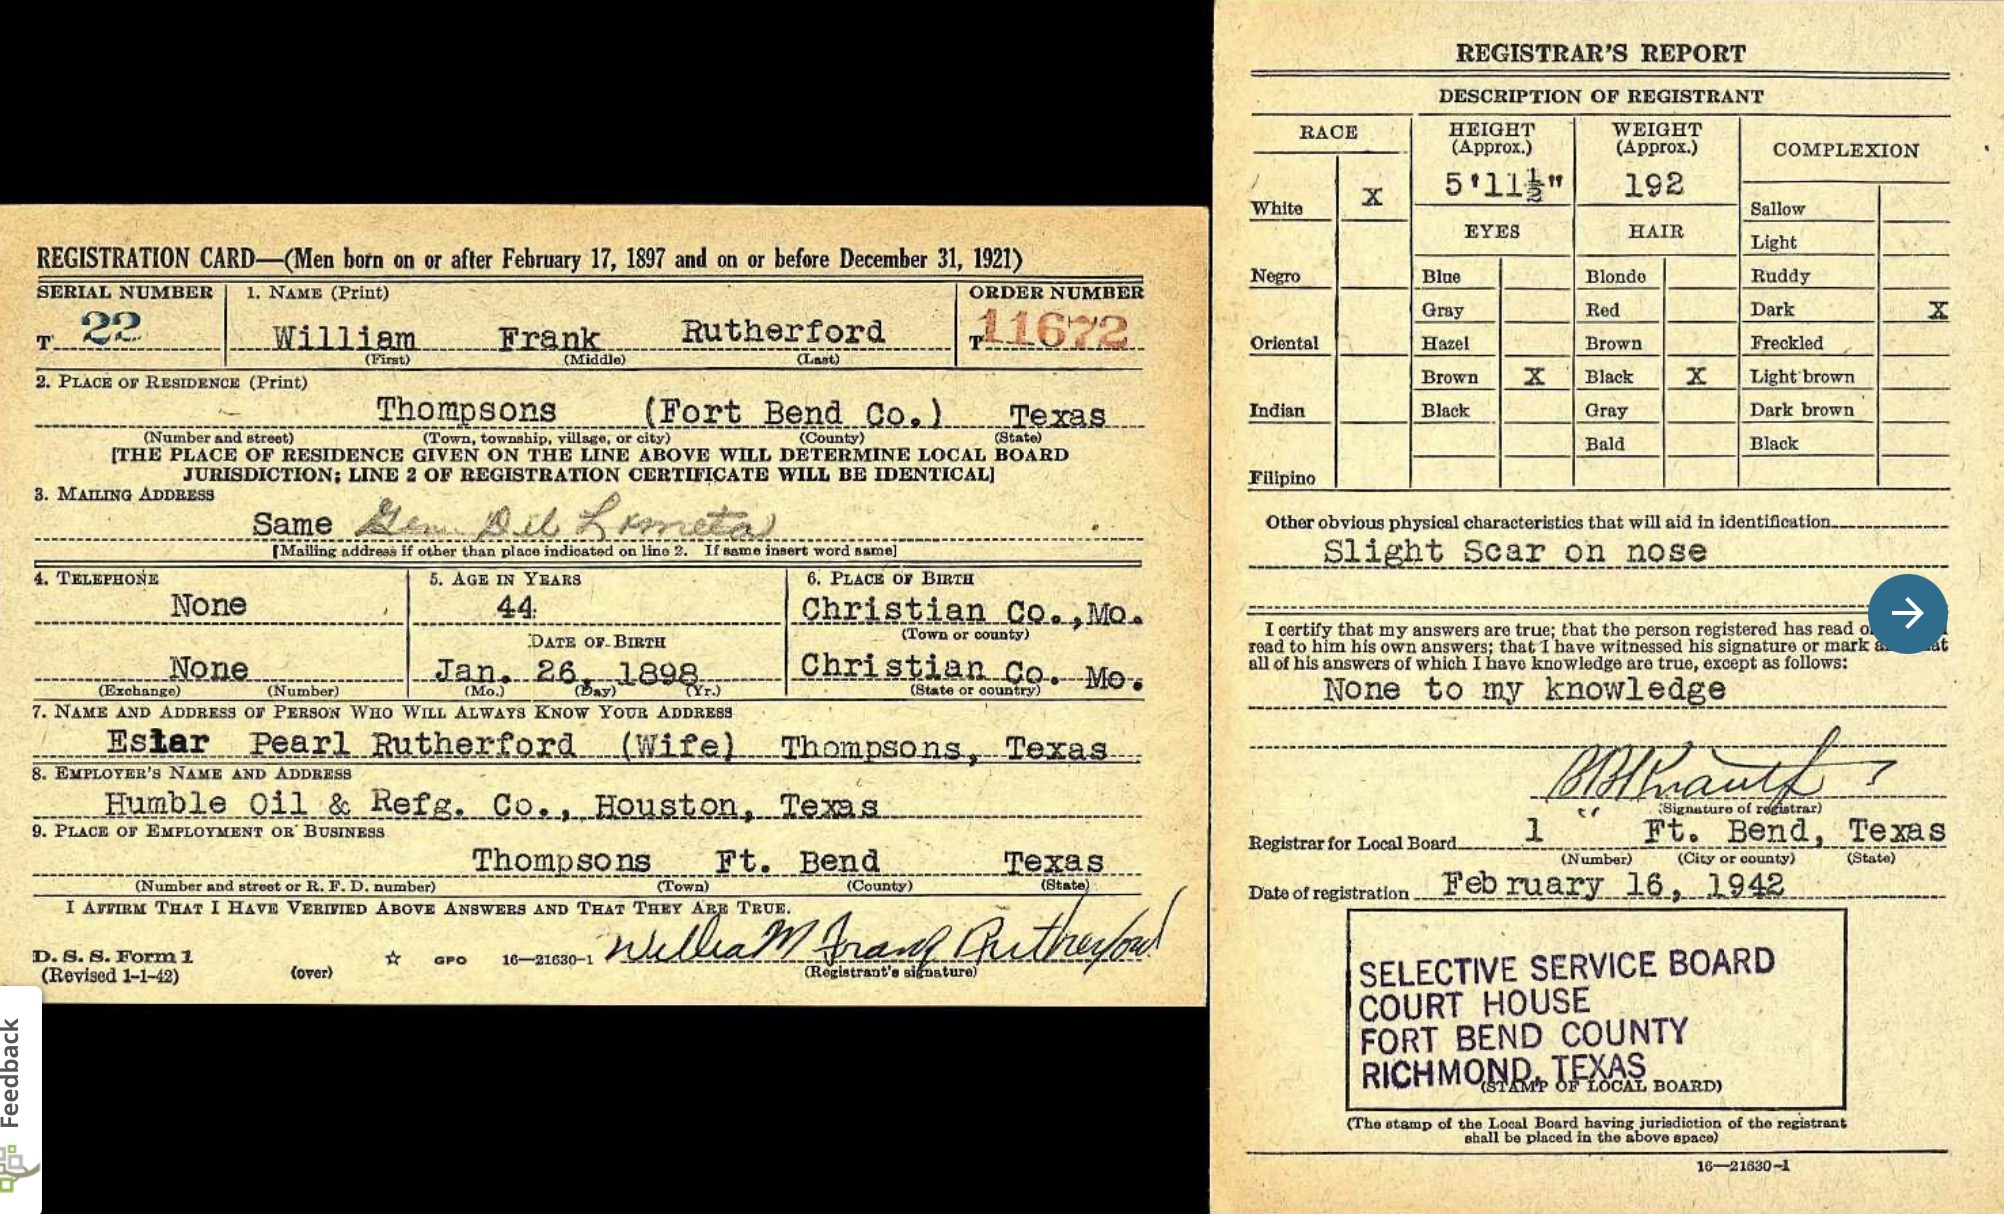 REGISTRATION CARD—(Men born on or after February 17, 1897 and on or before December 31, 1921)
SERIAL NUMBER
1. NAME (Print)
ORDER NUMBER
T 22
William Frank Rutherford
T 11672
(First) (Middle) (Last)
2. PLACE OF RESIDENCE (Print)
Thompsons (Fort Bend Co.) Texas
(Number and street) (Town, township, village, or city) (County) (State)
[THE PLACE OF RESIDENCE GIVEN ON THE LINE ABOVE WILL DETERMINE LOCAL BOARD
JURISDICTION; LINE 2 OF REGISTRATION CERTIFICATE WILL BE IDENTICAL]
3. MAILING ADDRESS
Same Gen Del Lometa
[Mailing address if other than place indicated on line 2. If same insert word same]
4. TELEPHONE
5. AGE IN YEARS
6. PLACE OF BIRTH
None
44
Christian Co., Mo.
(Town or county)
DATE OF BIRTH
None
Jan. 26, 1898
Christian Co. Mo.
(Exchange) (Number)
(Mo.) (Day) (Yr.)
(State or country)
7. NAME AND ADDRESS OF PERSON WHO WILL ALWAYS KNOW YOUR ADDRESS
Pearl Rutherford (Wife) Thompsons, Texas
8. EMPLOYER'S NAME AND ADDRESS
Humble Oil & Refg. Co., Houston, Texas
9. PLACE OF EMPLOYMENT OR BUSINESS
Thompsons Ft. Bend Texas
(Number and street or R. F. D. number) (Town) (County) (State)
I AFFIRM THAT I HAVE VERIFIED ABOVE ANSWERS AND THAT THEY ARE TRUE.
William Frank Rutherford
D. S. S. Form 1
(Revised 1-1-42)
(over)
☆ GPO 16—21630-1
(Registrant's signature)
Feedback
REGISTRAR'S REPORT
DESCRIPTION OF REGISTRANT
RACE
HEIGHT
(Approx.)
WEIGHT
(Approx.)
COMPLEXION
5'11½"
192
White X
Sallow
EYES
HAIR
Light
Negro
Blue
Blonde
Ruddy
Gray
Red
Dark X
Oriental
Hazel
Brown
Freckled
Brown X
Black X
Light brown
Indian
Black
Gray
Dark brown
Bald
Black
Filipino
Other obvious physical characteristics that will aid in identification
Slight Scar on nose
I certify that my answers are true; that the person registered has read
read to him his own answers; that I have witnessed his signature or mark
all of his answers of which I have knowledge are true, except as follows:
None to my knowledge
(Signature of registrar)
Registrar for Local Board 1 Ft. Bend, Texas
(Number) (City or county) (State)
Date of registration February 16, 1942
SELECTIVE SERVICE BOARD
COURT HOUSE
FORT BEND COUNTY
RICHMOND, TEXAS
(STAMP OF LOCAL BOARD)
(The stamp of the Local Board having jurisdiction of the registrant
shall be placed in the above space)
16—21630-1